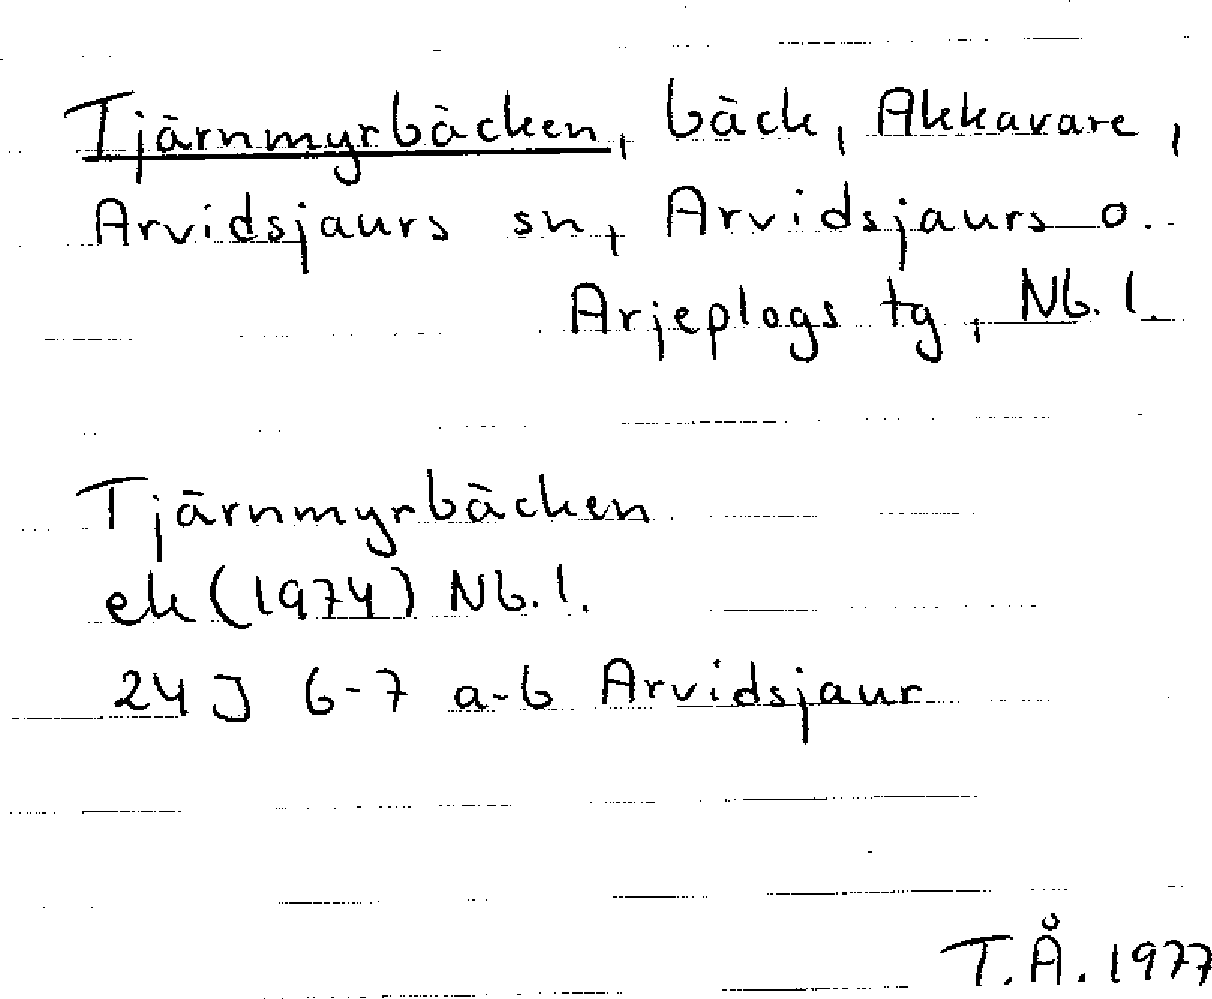 Tjärnmyrbäcken, bäck, Akkavare,
Arvidsjaurs sn, Arvidsjaurs o.
Arjeplogs tg, Nb. l.
Tjärnmyrbäcken
ek (1974) Nb. l.
24 J 6-7 a-b Arvidsjaur
T.Å. 1977